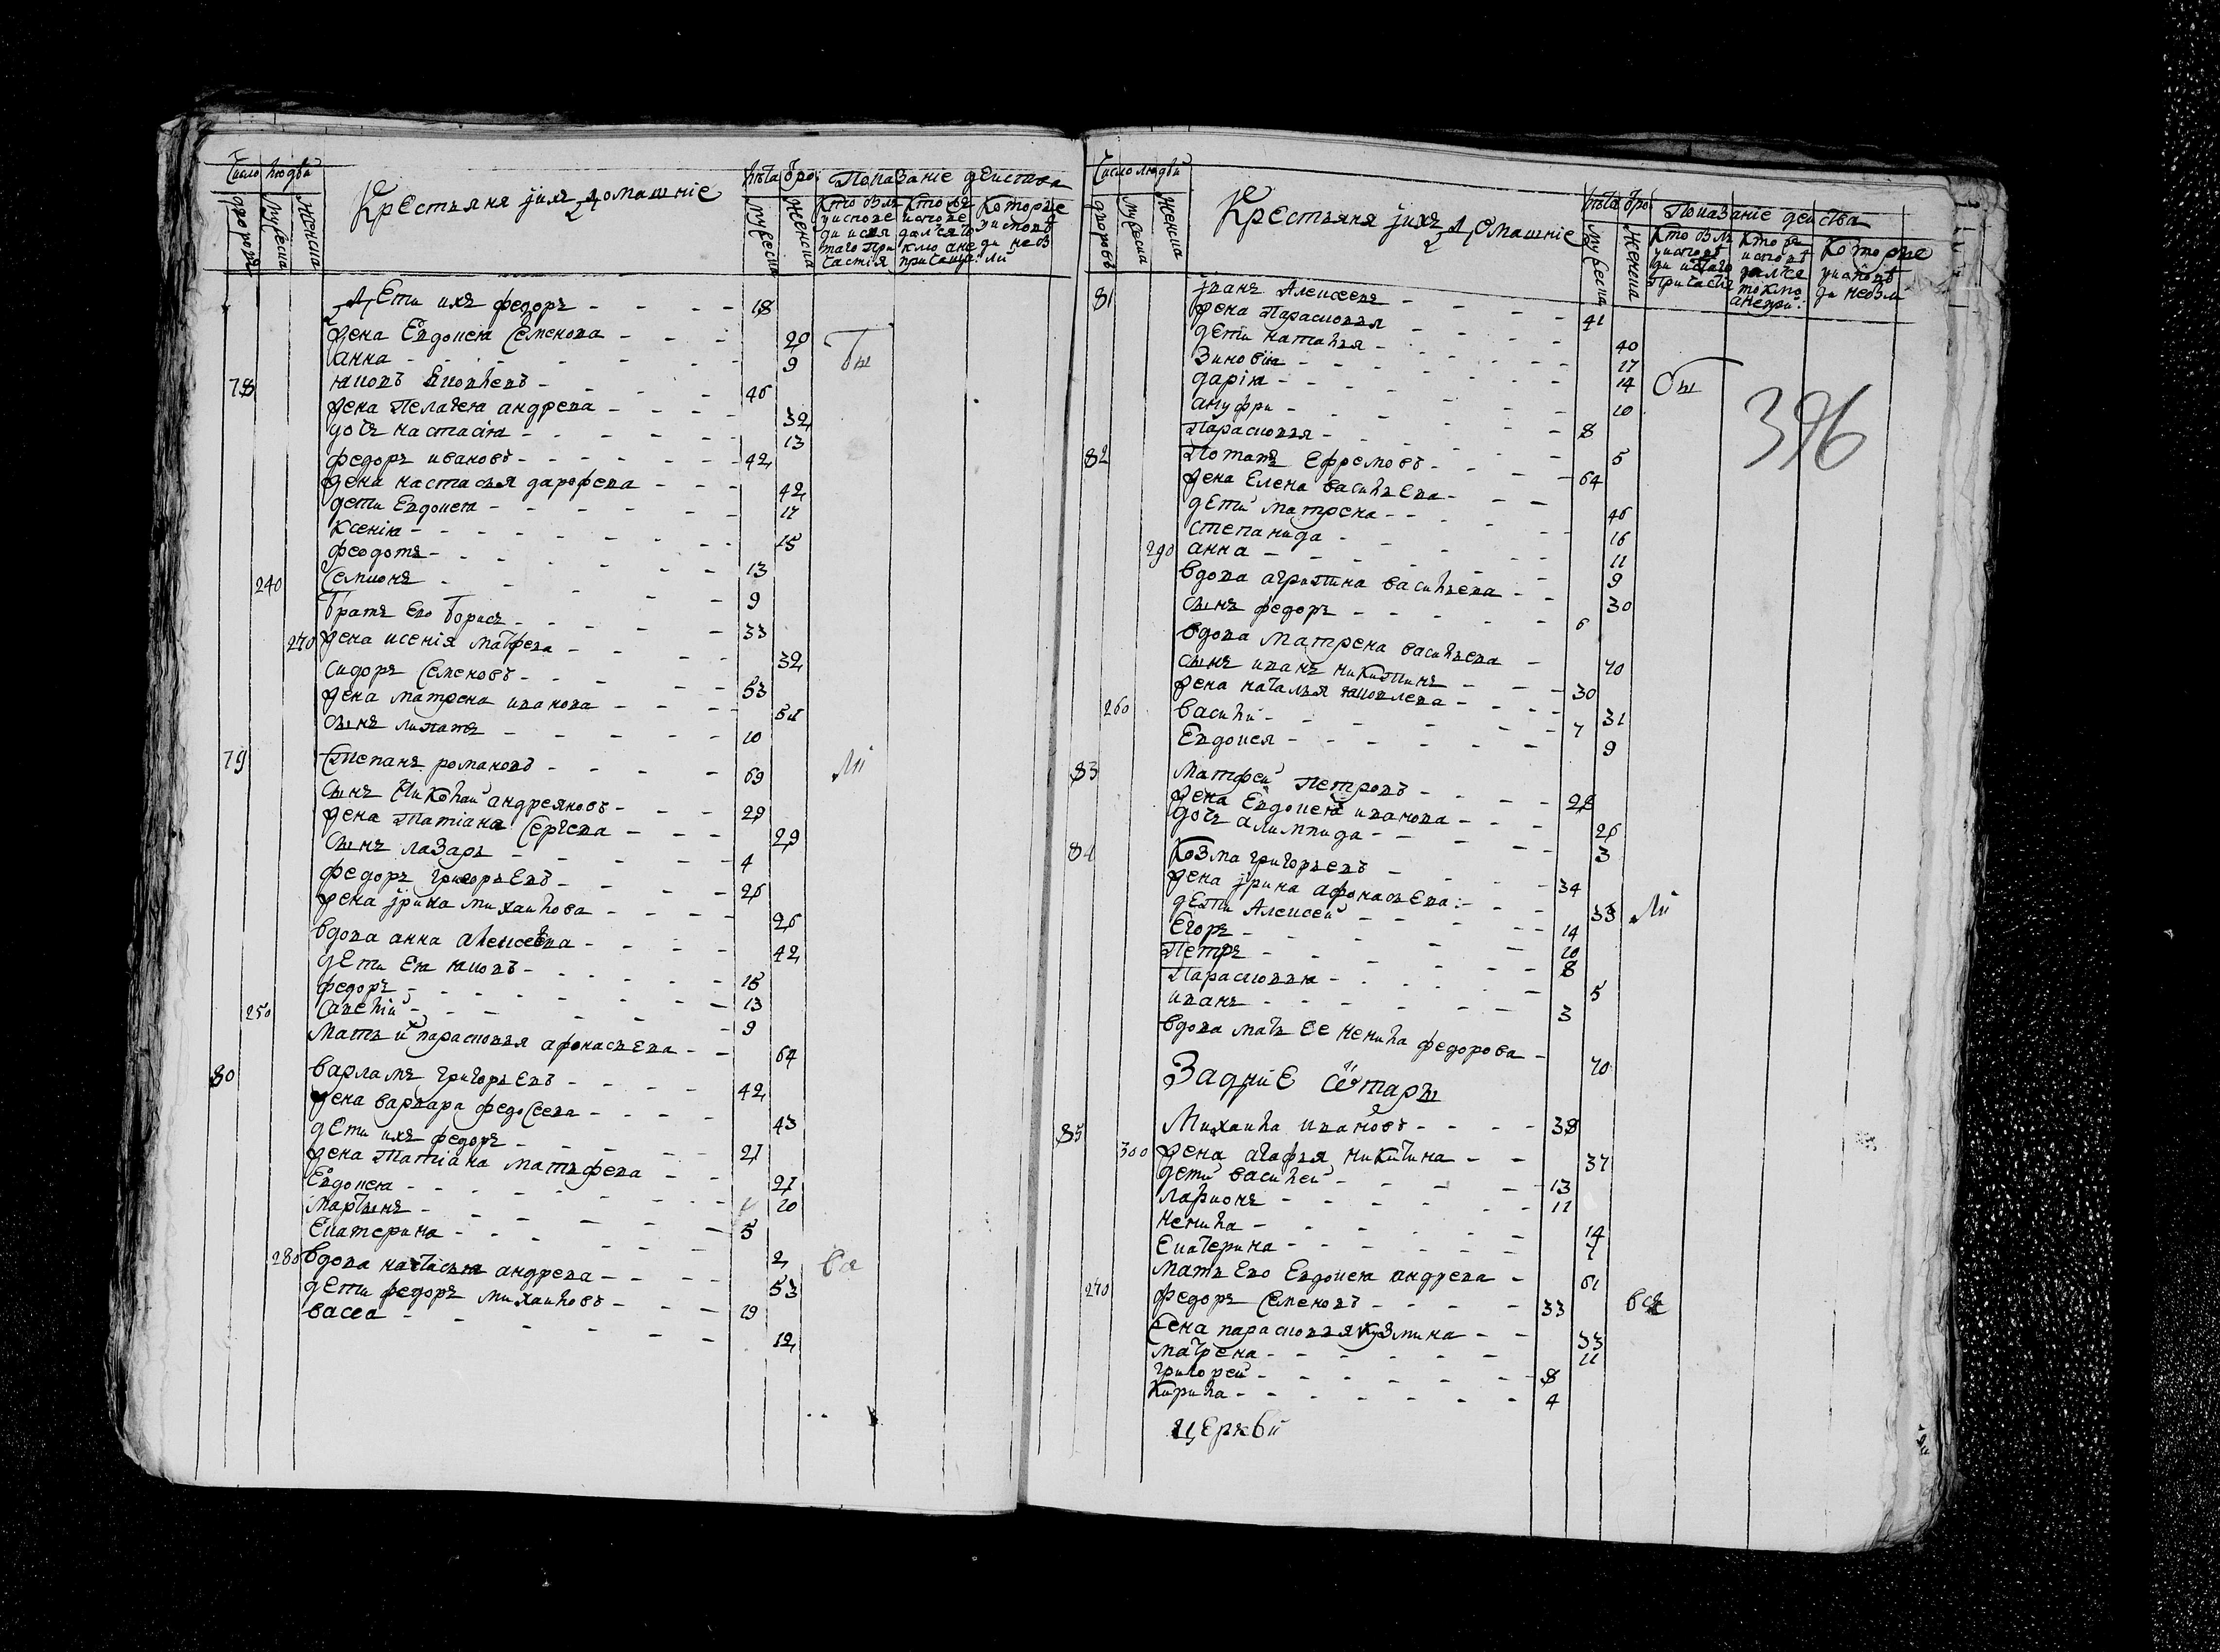 Число людей
дворовъ
мужеска
женска
Крестьяня ихъ домашніе
лѣта
мужеска
женска
Показаніе действа
Дети ихъ федоръ 18
жена Евдокея Семенова 20
анна 9
78 яковъ Яковлевъ 46
жена Пелагея андреева 32
дочь настасія 13
федоръ ивановъ 42
жена настасья дарофеева 42
дети Евдокея 17
ксенія 15
феодотъ 13
240 Семионъ 9
братъ Ево борисъ 33
270 жена ксенія матфева 32
сидоръ Семеновъ 53
жена матрена иванова 51
сынъ липатъ 10
79 Степанъ романовъ 69 ли
сынъ Николай андреяновъ 29
жена Татіана Сергева 29
сынъ лазаръ 4
федоръ григорьевъ 26
жена ірина михаилова 26
вдова анна алексеева 42
дети Ея яковъ 16
федоръ 13
250 савелій 9
мать и парасковья афонасьева 64
80 варламъ григорьевъ 42
жена варвара федосеева 43
дети ихъ федоръ 21
жена Татіана матвфева 21
Евдокея 10
мартынъ 5
Екатерина 2
280 вдова настасья андрева 53
дети федоръ михаиловъ 19
васса 12
Число людей
дворовъ
мужеска
женска
Крестьяня ихъ домашніе
лѣта
мужеска
женска
Показаніе действа
396
81 іванъ Алексеевъ 41
жена Парасковья 40
дети наталья 17
Зиновія 14
дарія 10
ануфри 8
Парасковья 5
82 Потапъ Ефремовъ 64
жена Елена васильева 46
дети матрена 16
степанида 11
290 анна 9
вдова агрипина васильева 30
сынъ федоръ 6
вдова матрена васильева 70
сынъ иванъ никитинъ 30
жена наталья яковлева 31
260 васили 7
Евдокея 9
83 матфей Петровъ 28
жена Евдокея иванова 26
дочь алимпида 3
84 Козма григорьевъ 34
жена ірина афонасьева 33 ли
дети Алексей 14
Егоръ 10
Петръ 8
Парасковья 5
иванъ 3
вдова мать Ее ненила федорова 70
Задние
85 Михаила ивановъ 38
300 жена агафья никитина 37
дети василей 13
ларионъ 11
ненила 14
Екатерина 7
мать Ево Евдокея андрева 61
270 федоръ Семеновъ 33 вся
жена парасковья кузмина 33
матрена 11
григорей 8
Кирила 4
церкви